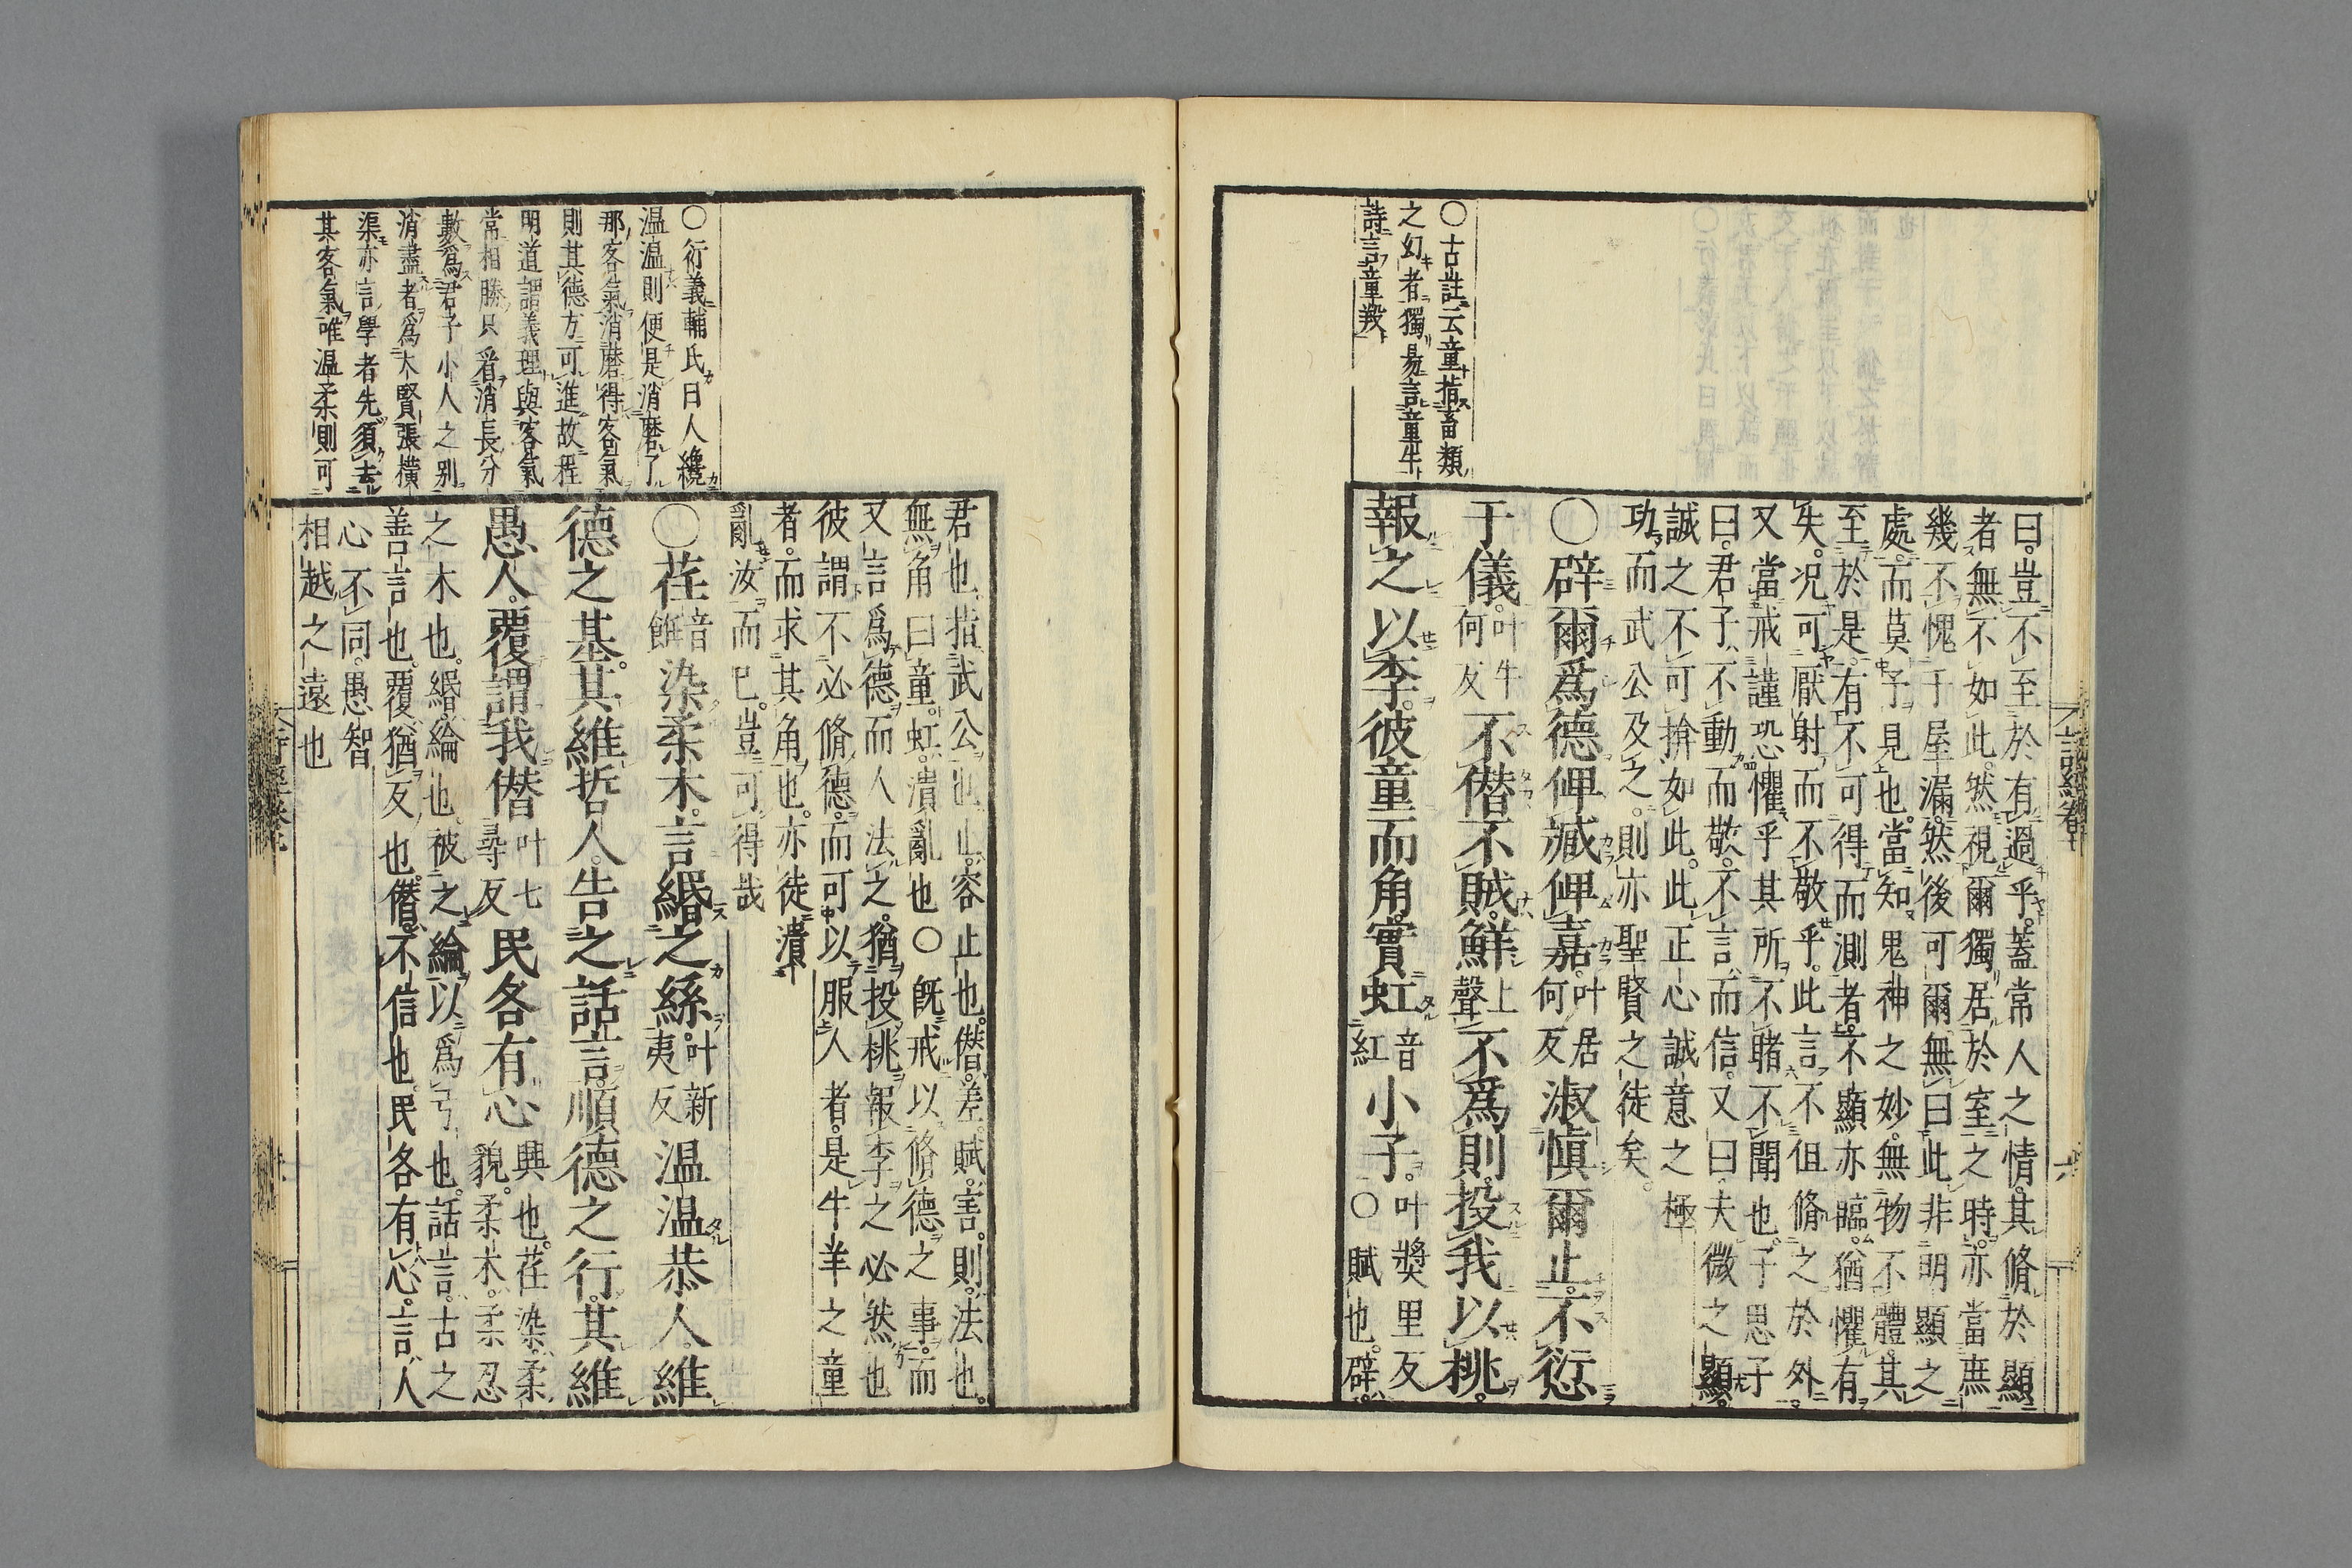 曰豈不至於有過乎蓋常人之情其脩於顯
者無不如此然視爾獨居於室之時亦當庶
幾不愧于屋漏然後可爾無曰此非明顯之
處而莫予見也當知鬼神之妙無物不體其
至於是有不可得而測者不顯亦臨猶懼有
失況可厭射而不敬乎此言不但脩之於外
又當戒謹恐懼乎其所不睹不聞也子思子
曰君子不動而敬不言而信又曰夫微之顯
誠之不可揜如此此正心誠意之極
功而武公及之則亦聖賢之徒矣
〇辟爾爲德俾臧俾嘉叶居何反淑愼爾止不愆
于儀叶牛何反不僭不賊鮮上聲不爲則投我以桃
報之以李彼童而角實虹音紅小子叶奬里反〇賦也辟
〇古註云童指畜類
之幻者獨易言童牛
詩言童羖
君也指武公也止容止也僭差賊害則法也
無角曰童虹潰亂也〇旣戒以脩德之事而
又言爲德而人法之猶投桃報李之必然也
彼謂不必脩德而可以服人者是牛羊之童
者而求其角也亦徒潰
亂汝而已豈可得哉
〇荏音飪染柔木言緡之絲叶新夷反温温恭人維
德之基其維哲人告之話言順德之行其維
愚人覆謂我僭叶七尋反民各有心興也荏染柔貌柔木柔忍
之木也緡綸也被之綸以爲弓也話言古之
善言也覆猶反也僭不信也民各有心言人
心不同愚智
相越之遠也
〇衍義輔氏曰人纔
温温則便是消磨了
那客氣消磨得客氣
則其德方可進故程
明道謂義理與客氣
常相勝只看消長分
數爲君子小人之别
消盡者爲大賢張横
渠亦言學者先須去
其客氣唯温柔則可